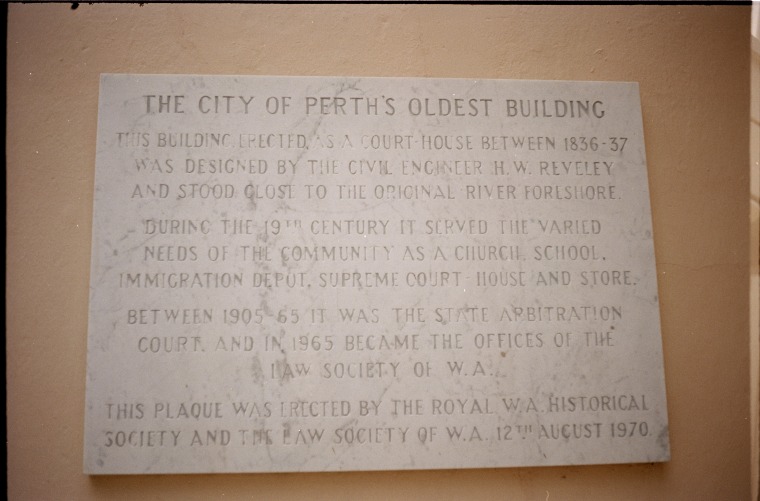 THE CITY OF PERTH'S OLDEST BUILDING
THIS BUILDING ERECTED, AS A COURT-HOUSE BETWEEN 1836-37
WAS DESIGNED BY THE CIVIL ENGINEER H.W. REVELEY
AND STOOD CLOSE TO THE ORIGINAL RIVER FORESHORE.
DURING THE 19TH CENTURY IT SERVED THE VARIED
NEEDS OF THE COMMUNITY AS A CHURCH, SCHOOL,
IMMIGRATION DEPOT, SUPREME COURT-HOUSE AND STORE.
BETWEEN 1905-65 IT WAS THE STATE ARBITRATION
COURT, AND IN 1965 BECAME THE OFFICES OF THE
LAW SOCIETY OF W.A..
THIS PLAQUE WAS ERECTED BY THE ROYAL W.A. HISTORICAL
SOCIETY AND THE LAW SOCIETY OF W.A. 12TH AUGUST 1970.